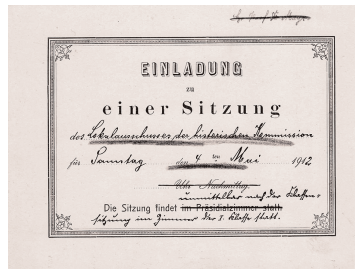 EINLADUNG
zu
einer Sitzung
des Lokalausschusses der historischen Kommission
für Samstag den 4ten Mai 1912
Uhr Nachmittag
unmittelbar nach der Klassen-
Die Sitzung findet im Präsidialzimmer statt
sitzung im Zimmer der I. Classe statt.